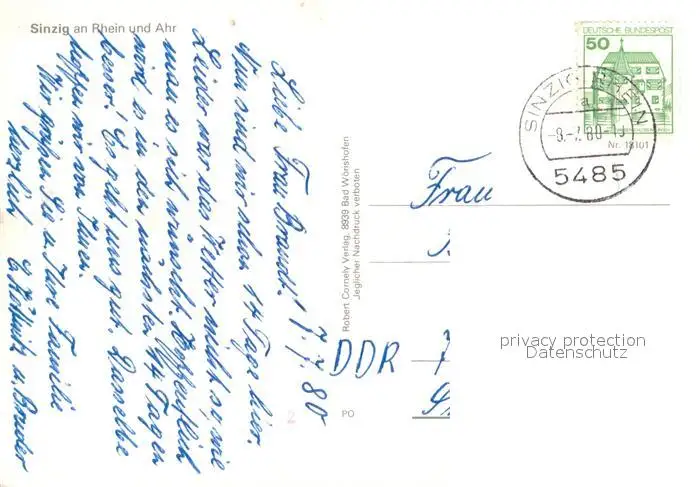 Sinzig an Rhein und Ahr
Liebe Frau Brandt! 7.7.80
Nun sind wir schon 14 Tage hier.
Leider war das Wetter nicht so, wie
man es sich wünscht. Hoffentlich
wird es in den nächsten 14 Tagen
besser! Es geht uns gut. Dasselbe
hoffen wir von Ihnen.
Wir grüßen Sie u. Ihre Familie
herzlich u. Bruder
Robert Cornely Verlag, 8939 Bad Wörishofen
Jeglicher Nachdruck verboten
DEUTSCHE BUNDESPOST
50
SINZIG, RHEIN
a
-8.-7.80-
5485
Nr. 18101
Frau
DDR
PO
2
privacy protection
Datenschutz